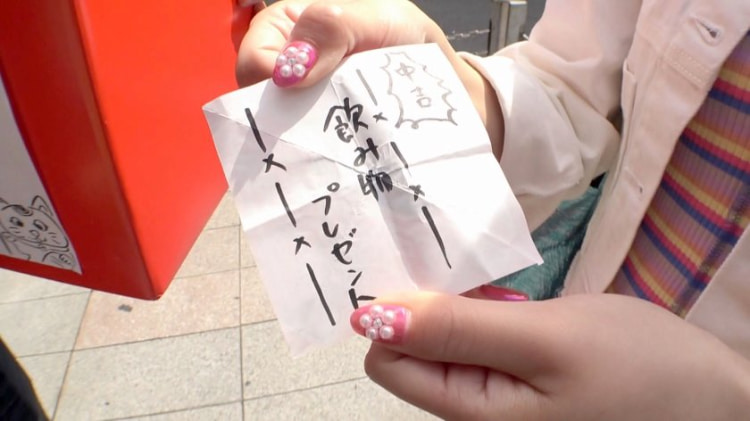 中吉
飲み物
プレゼント